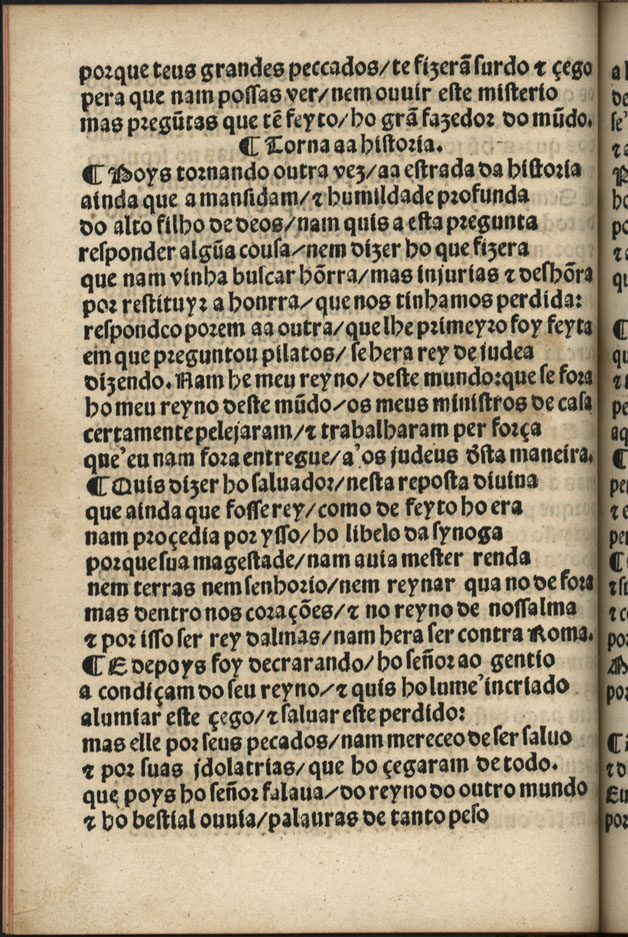 porque teus grandes peccados/te fizerã surdo ⁊ çego
pera que nam possas ver/nem ouuir este misterio
mas pregũtas que tẽ feyto/ho grã fazedor do mũdo.
¶ Torna aa historia.
¶ Poys tornando outra vez/aa estrada da historia
ainda que a mansidam/⁊ humildade profunda
do alto filho de deos/nam quis a esta pregunta
responder algũa cousa/nem dizer ho que fizera
que nam vinha buscar hõrra/mas injurias ⁊ deshõra
por restituyr a honrra/que nos tinhamos perdida:
respondeo porem aa outra/que lhe primeyro foy feyta
em que preguntou pilatos/ se hera rey de iudea
dizendo. Nam he meu reyno/ deste mundo:que se fora
ho meu reyno deste mũdo/os meus ministros de casa
certamente pelejaram/⁊ trabalharam per força
que'eu nam fora entregue/a'os judeus d̃sta maneira.
¶ Quis dizer ho saluador/nesta reposta diuina
que ainda que fosse rey/como de feyto ho era
nam proçedia por ysso/ho libelo da synoga
porque sua magestade/nam auia mester renda
nem terras nem senhorio/nem reynar qua no de fora
mas dentro nos corações/⁊ no reyno de nossalma
⁊ por isso ser rey dalmas/nam hera ser contra Roma.
¶ E depoys foy decrarando/ho señor ao gentio
a condiçam do seu reyno/⁊ quis ho lume'incriado
alumiar este çego/⁊ saluar este perdido:
mas elle por seus pecados/nam mereceo de ser saluo
⁊ por suas jdolatrias/que ho çegaram de todo.
que poys ho señor falaua/do reyno do outro mundo
⁊ ho bestial ouuia/palauras de tanto peso